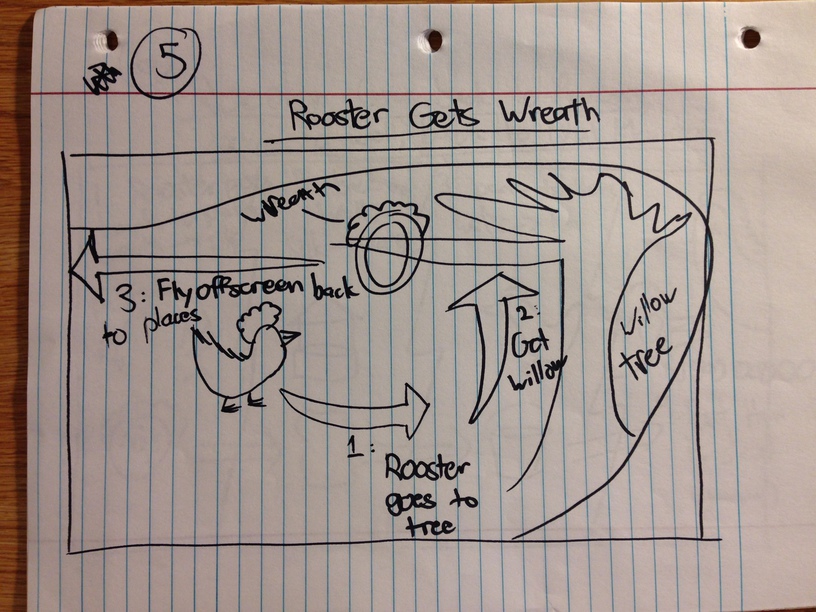 5
Rooster Gets Wreath
wreath
3: Fly offscreen back
to places
2:
Get
willow
willow
tree
1:
Rooster
goes to
tree